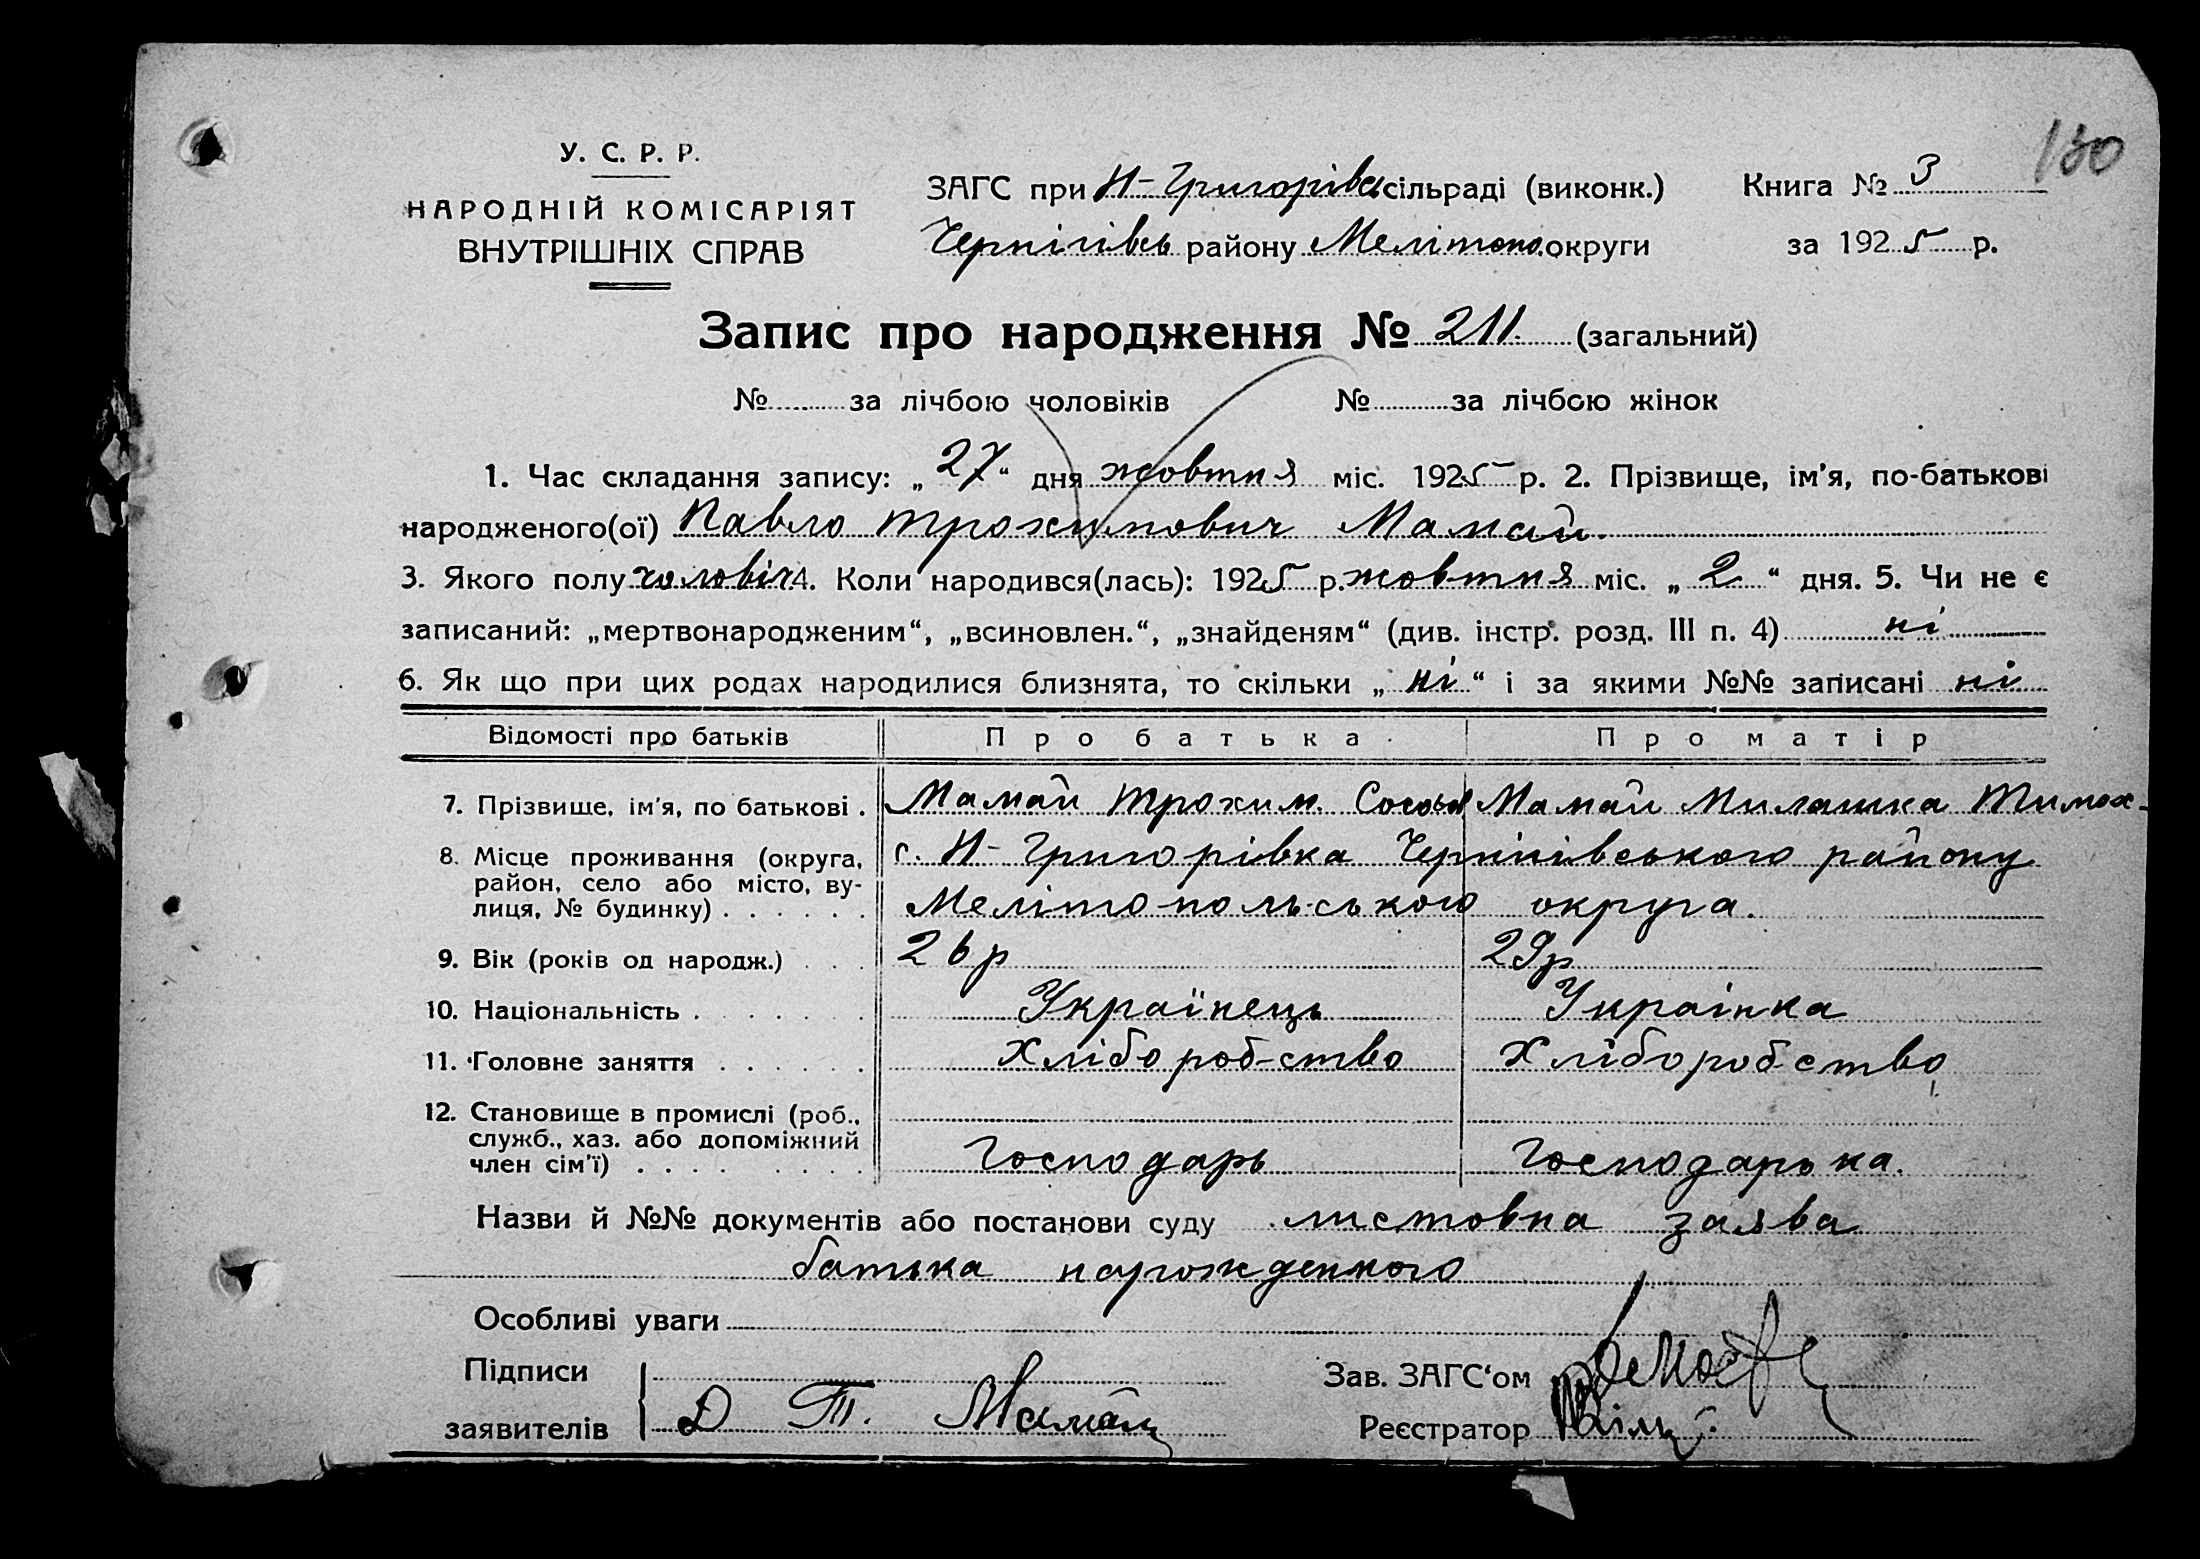 130
У. С. Р. Р.
НАРОДНІЙ КОМІСАРІЯТ
ВНУТРІШНІХ СПРАВ
ЗАГС при Н-Григорівсь сільраді (виконк.)
Чернігівсь району Мелітопо. округи
Книга № 3
за 1925 р.
Запис про народження № 211. (загальний)
№ за лічбою чоловіків № за лічбою жінок
1. Час складання запису: „27“ дня жовтня міс. 1925 р. 2. Прізвище, ім'я, по-батькові
народженого(ої) Павло Трохимович Мамай.
3. Якого полу чоловіч 4. Коли народився(лась): 1925 р. жовтня міс. „2“ дня. 5. Чи не є
записаний: „мертвонародженим“, „всиновлен.“, „знайденям“ (див. інстр. розд. III п. 4) ні
6. Як що при цих родах народилися близнята, то скільки „ні“ і за якими №№ записані ні
Відомості про батьків Про батька Про матір
7. Прізвище, ім'я, по батькові . Мамай Трохим Мамай Милашка Тимох-
8. Місце проживання (округа, с. Н-Григорівка Чернігівського району
район, село або місто, ву-
лиця, № будинку) . . . . . . Мелітопольського округа.
9. Вік (років од народж.) . . . 26 р 29 р
10. Національність . . . . . . . Українець Українка
11. Головне заняття . . . . . . Хліборобство Хліборобство
12. Становище в промислі (роб.,
служб., хаз. або допоміжний
член сім'ї) . . . . . . . . . Господарь Господарька.
Назви й №№ документів або постанови суду листовна заява
батька нарожденного
Особливі уваги
Підписи
заявителів Д Т. Мамай
Зав. ЗАГС'ом
Реєстратор